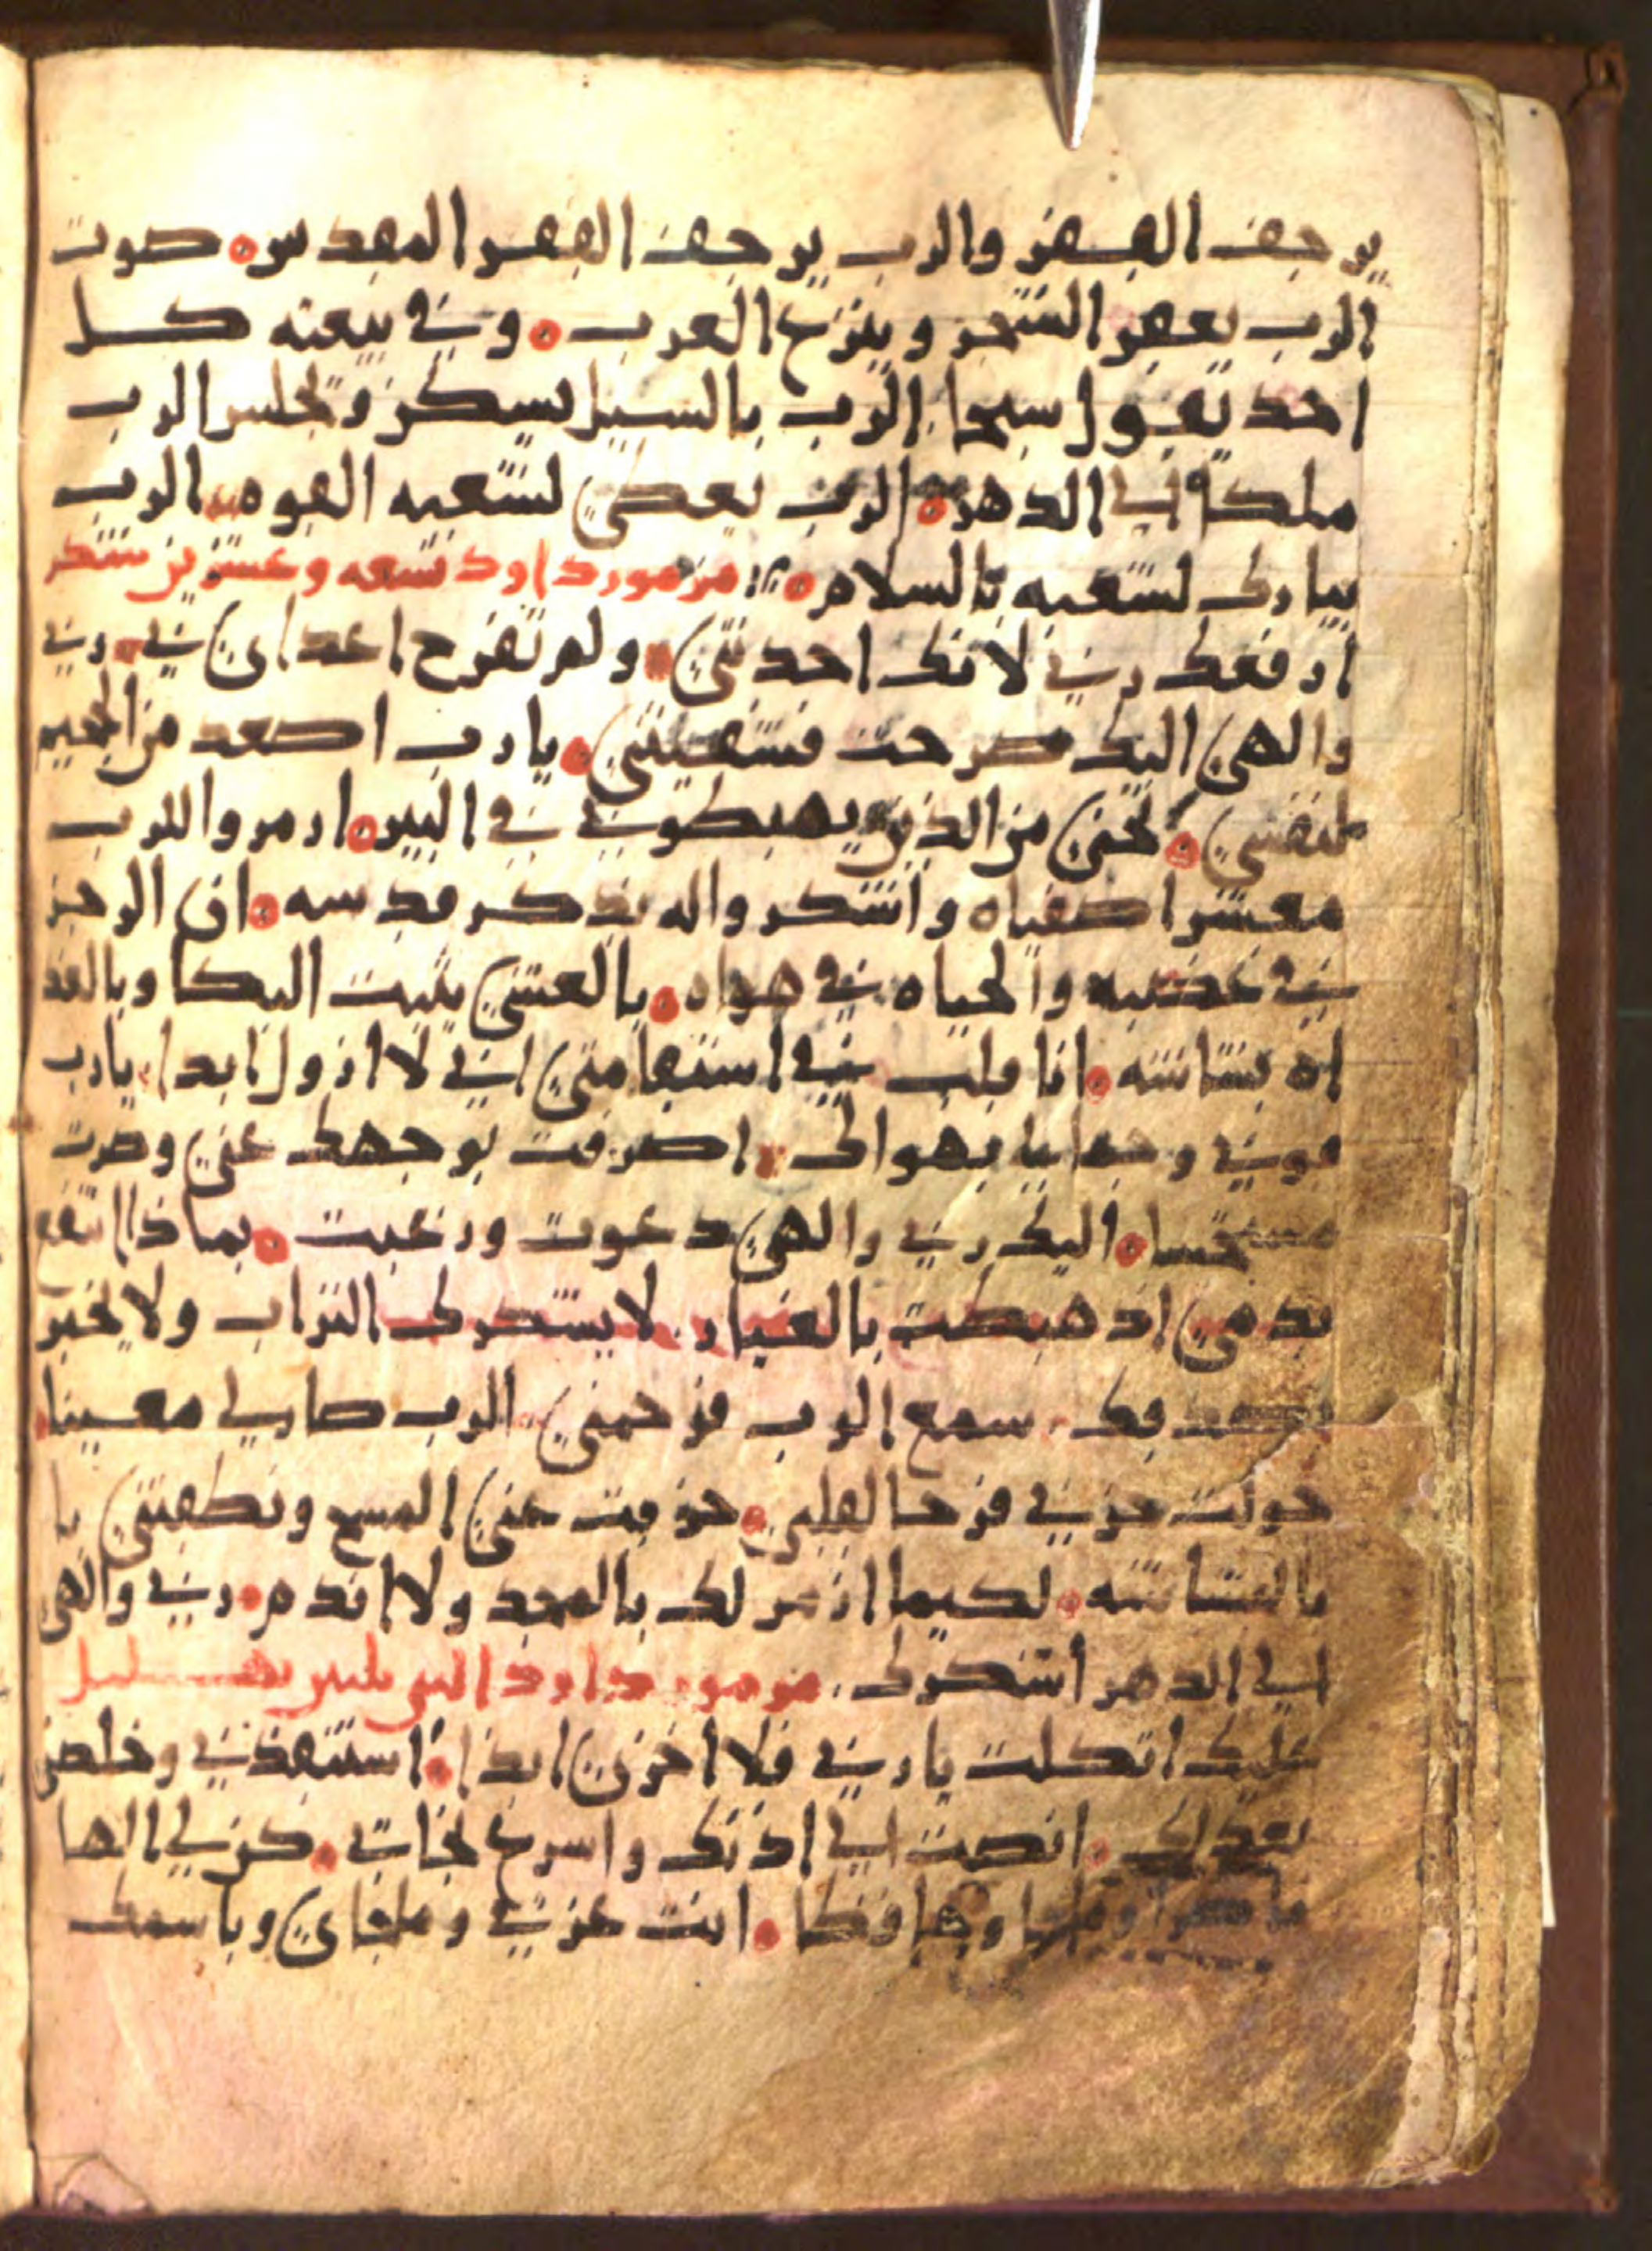 يرجف القفر والرب يرجف القفر المقدس صوت
الرب يعقر الشجر وينزح العرب وفي بيعته كل
احد يقول سبحا الرب بالسيل يسكن وتجلس الرب
ملكا الى الدهر الرب يعطي لشعبه القوه الرب
يبارك لشعبه بالسلام مزمور داود تسعه وعشرين شكر
ارفعك ربي لانك احدتني ولم تفرح اعداي في ربي
والهي اليك صرخت فشفيتني يا رب اصعد من الجحيم
لنفسي نجني من الذين يهبطون في البير ازمروا للرب
معشر اصفياه واشكروا له بذكر قدسه ان الرجز
في غضبه والحياه في هواه بالعشي يثبت البكا وبالغد
اه بشاشه انا قلت في استقامتي اني لا ازول ابدا يا رب
قوني وجمالنا بهواك اصرفت بوجهك عني وصرت
اليك ربي والهي دعوت ورغبت بماذا انفع
بدمي اذ هبطت بالغبار لا يشكرك التراب ولا يخبر
سمع الرب فرحمني الرب صار لي معينا
حولت حزني فرحا لقلبي خزقت عني المسح ونطقتني با
بالبشاشه لكيما ازمر لك بالمجد ولا اندم ربي والهي
الى الدهر أشكرك مزمور داود النبي ثلثين تهليل
عليك اتكلت يا ربي فلا اخزى ابدا استنقذني وخلصن
بعدلك انصت الي اذنك واسرع نجاتي كن لي الها
وملجا وحافظا انت عزتي وملجاي وباسمك